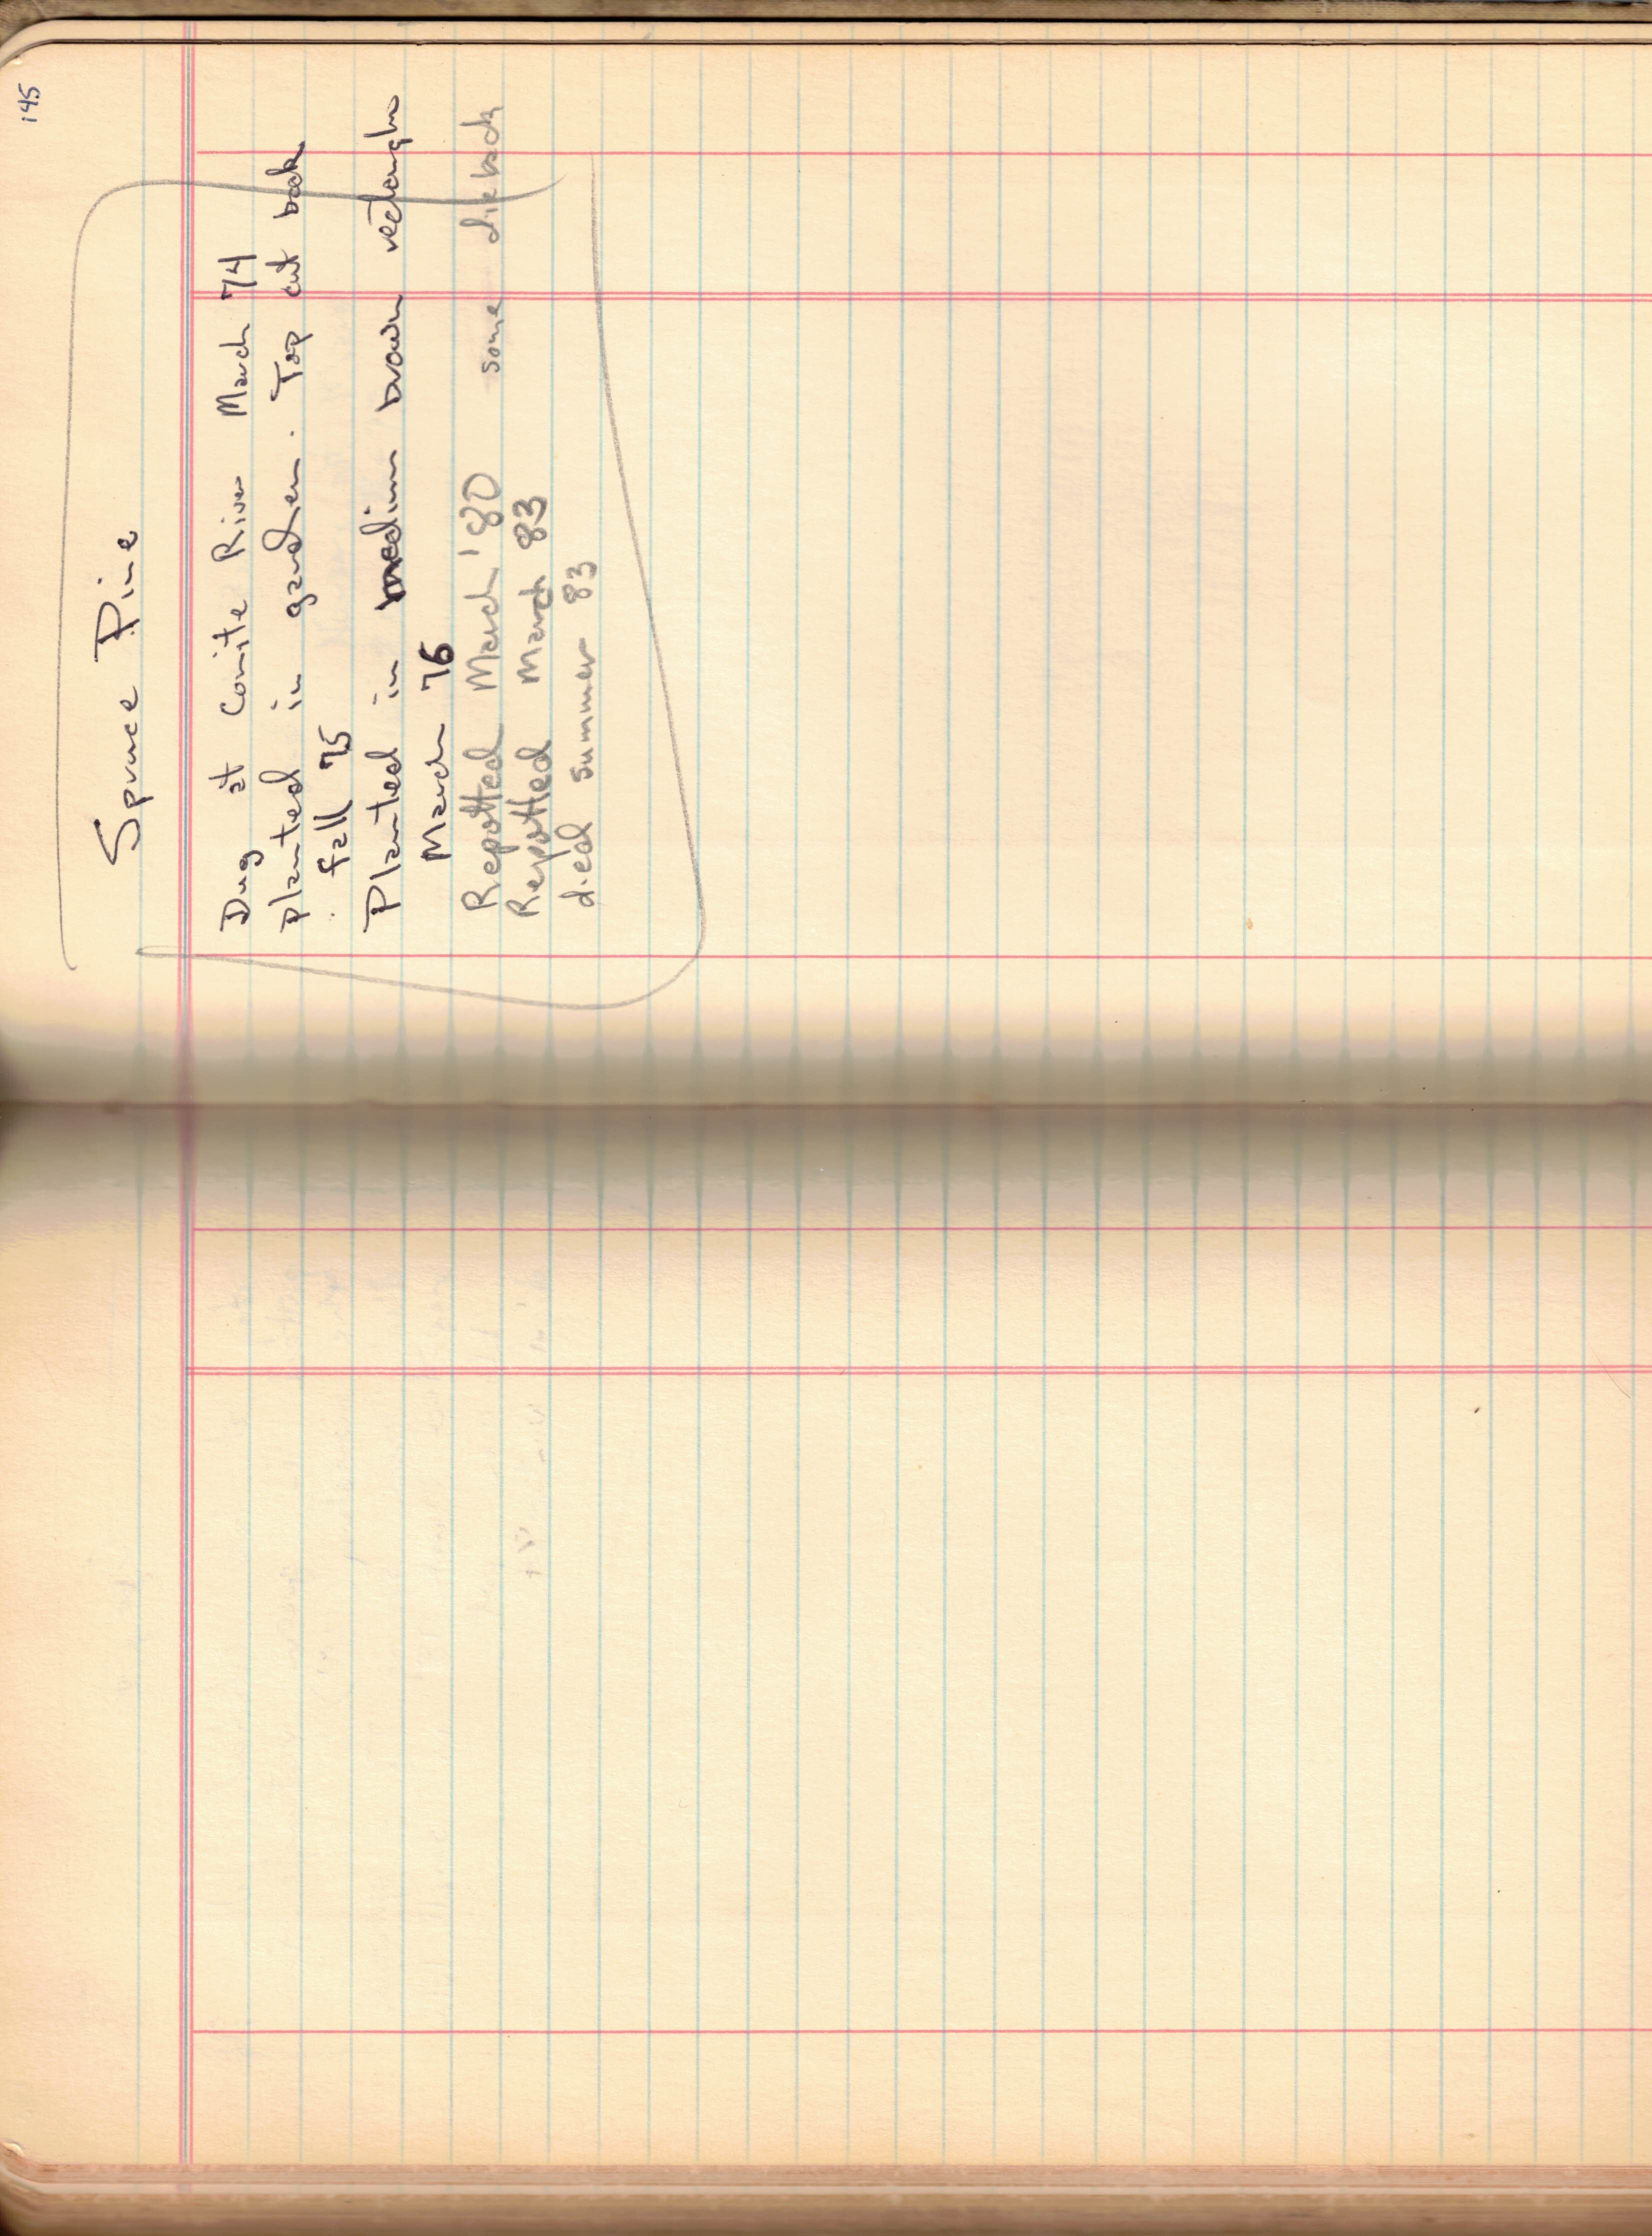 145
Spruce Pine
Dug at Comite River March 74
planted in garden. Top cut back
fall 75
Planted in medium brown rectangle
March 76
Repotted March '80 some dieback
Repotted March 83
died summer 83